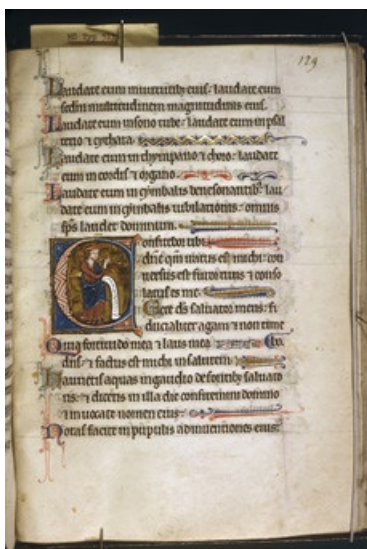 129
Laudate eum in uirtutibz eius: laudate eum
scdm multitudinem magnitudinis eius.
Laudate eum in sono tube: laudate eum in psal
terio ⁊ cythara.
Laudate eum in thympano ⁊ choro: laudate
eum in cordis ⁊ organo.
Laudate eum in cymbalis benesonantibz: lau
date eum in cymbalis iubilationis: omnis
sps laudet dominum.
Confitebor tibi
dne qm iratus es michi: con
uersus est furor tuus ⁊ conso
latus es me.
Ecce ds saluator meus: fi
ducialiter agam ⁊ non time
Quia fortitudo mea ⁊ laus mea bo.
dns: ⁊ factus est michi in salutem.
Haurietis aquas in gaudio de fontibz saluato
ris: ⁊ dicetis in illa die confitemini domino
⁊ inuocate nomen eius.
Notas facite in populis adinuentiones eius: